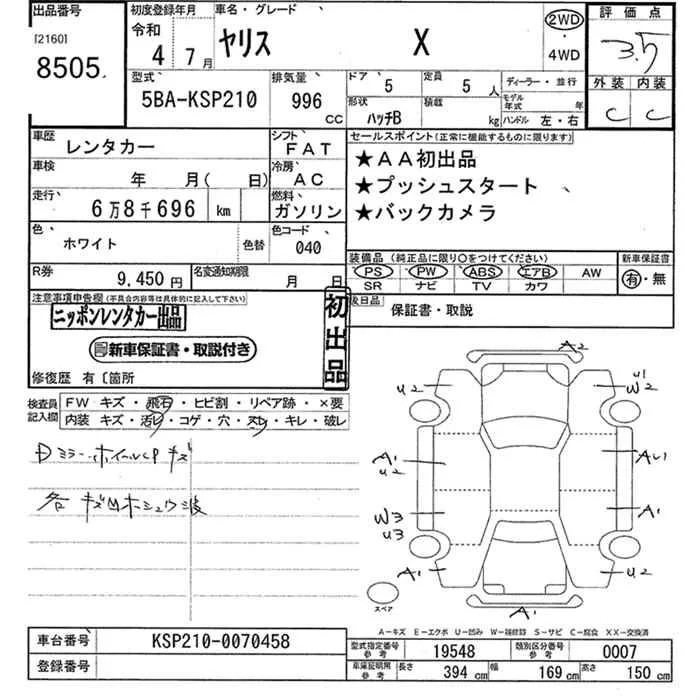 出品番号 初度登録年月 車名・グレード 評価点
[2160] 令和 4年 7月 ヤリス X 2WD・4WD 3.5
8505 型式 排気量 ドア 定員 ディーラー・並行 外装 内装
5BA-KSP210 996 CC 5 5人 モデル年式 年 C C
形状 積載 ハンドル 左・右
ハッチB kg
車歴 レンタカー シフト FAT セールスポイント(正常に機能するものに限ります)
車検 年 月( 日) 冷房 AC ★AA初出品
走行 6万8千696 km 燃料 ガソリン ★プッシュスタート
★バックカメラ
色 ホワイト 色替 色コード 040
装備品(純正品に限り○をつけてください) 新車保証書
PS PW ABS エアB AW 有・無
SR ナビ TV カワ
R券 9,450円 名変通知期限 月 日
後日品 保証書・取説
注意事項申告欄(不具合内容等は具体的に記入して下さい)
ニッポンレンタカー出品
新車保証書・取説付き
初出品
修復歴 有〔箇所
検査員記入欄 FW キズ・飛石・ヒビ割・リペア跡・×要
内装 キズ・汚レ・コゲ・穴・スレ・キレ・破レ
Dミラー・ホイールCP キズ
各 キズ凹ホシュウ波
A2
U2 U1 W2
A1 U2 AU1
W3 U3 A1
A1 U2
A1
スペア
A-キズ E-エクボ U-凹み W-補修跡 S-サビ C-腐食 XX-交換済
車台番号 KSP210-0070458
登録番号
型式指定番号 参考 19548 類別区分番号 参考 0007
車庫証明用 参考 長さ 394 cm 幅 169 cm 高さ 150 cm